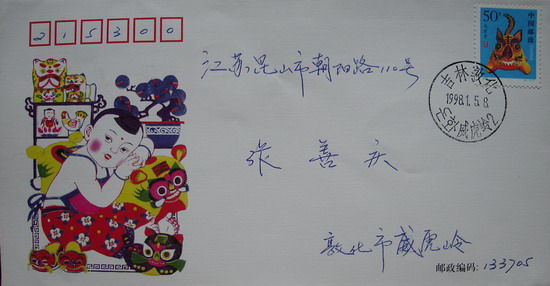 215300
江苏昆山市朝阳路110号
50分
中国邮政
吉林敦化
1998.1.5.8
威虎岭
张善庆
敦化市威虎岭
邮政编码：133705